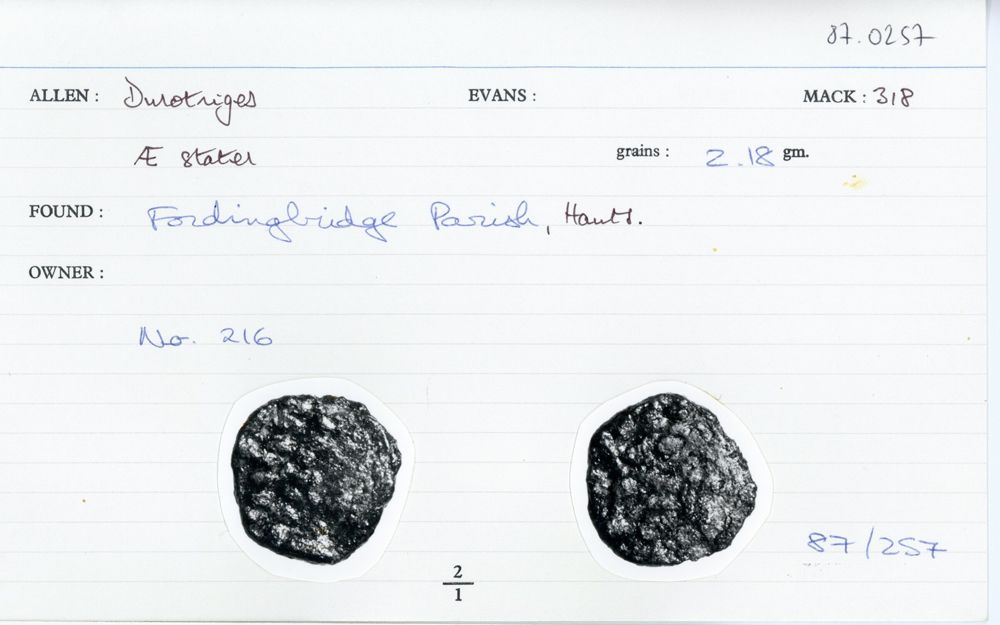 87.0257
ALLEN : Durotriges EVANS : MACK : 318
Æ stater grains : 2.18 gm.
FOUND : Fordingbridge Parish, Hants.
OWNER :
No. 216
87/257
2
1